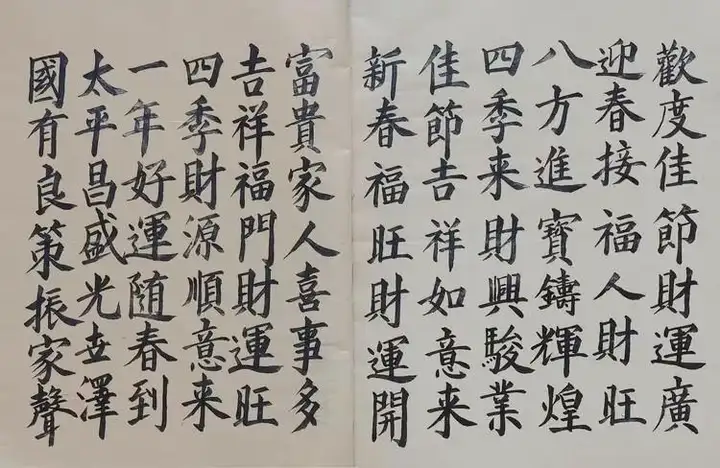 歡度佳節財運廣
迎春接福人財旺
八方進寶鑄輝煌
四季来財興駿業
佳節吉祥如意来
新春福旺財運開
富貴家人喜事多
吉祥福門財運旺
四季財源順意来
一年好運随春到
太平昌盛光世澤
國有良策振家聲